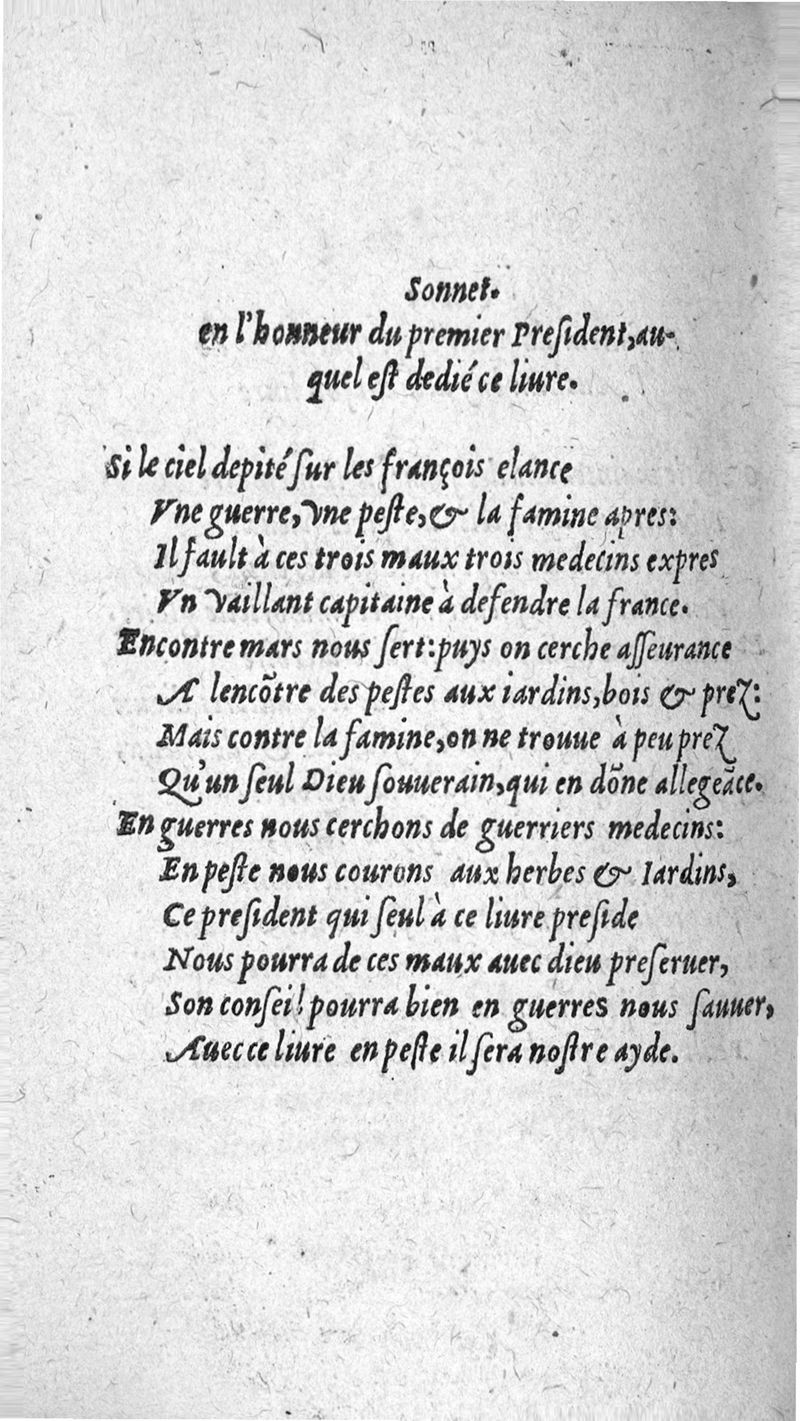 Sonnet.
en l'honneur du premier Preſident, au-
quel eſt dedié ce liure.
Si le ciel depité ſur les françois elance
Vne guerre, vne peſte, & la famine apres:
Il fault à ces trois maux trois medecins expres
Vn vaillant capitaine à defendre la france.
Encontre mars nous ſert: puys on cerche aſſeurance
A lencõtre des peſtes aux iardins, bois & prez:
Mais contre la famine, on ne trouue à peu prez
Qu'un ſeul Dieu ſouuerain, qui en dõne allegeãce.
En guerres nous cerchons de guerriers medecins:
En peſte nous courons aux herbes & Iardins,
Ce preſident qui ſeul à ce liure preſide
Nous pourra de ces maux auec dieu preſeruer,
Son conſeil pourra bien en guerres nous ſauuer,
Auec ce liure en peſte il ſera noſtre ayde.